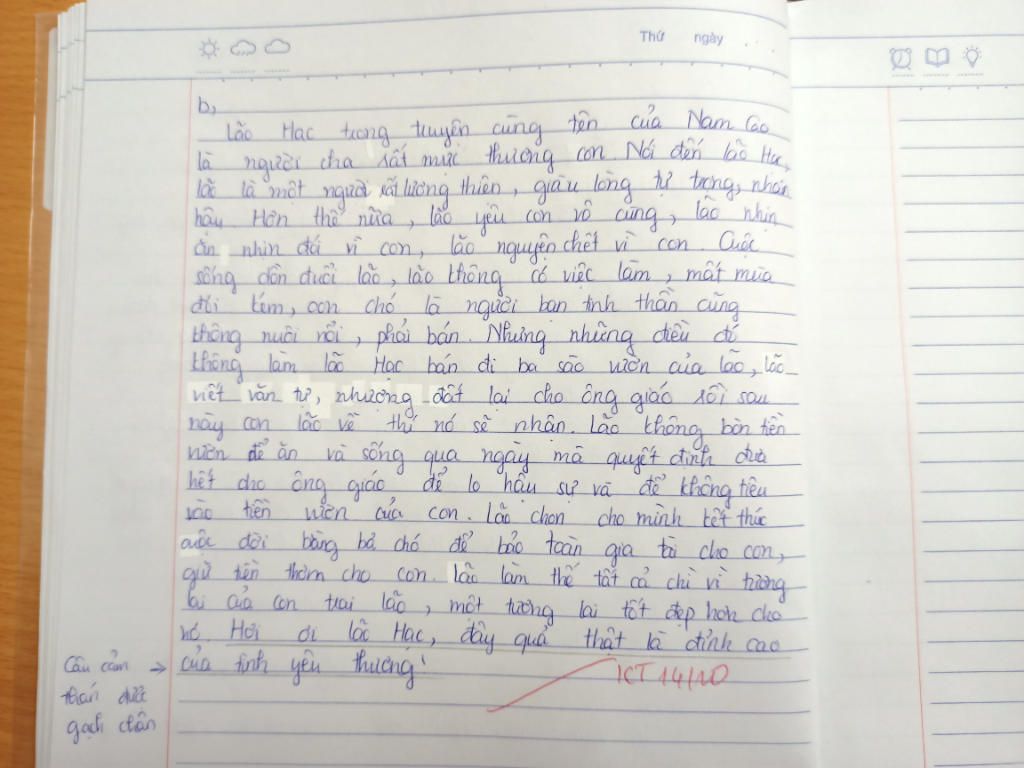 Thứ ngày
b,
Lão Hạc trong truyện cùng tên của Nam Cao
là người cha rất mực thương con. Nói đến lão Hạc,
lão là một người rất lương thiện, giàu lòng tự trọng, nhân
hậu. Hơn thế nữa, lão yêu con vô cùng, lão nhịn
ăn nhịn đói vì con, lão nguyện chết vì con. Cuộc
sống dồn đuổi lão, lão không có việc làm, mất mùa
đói kém, con chó là người bạn tinh thần cũng
không nuôi nổi, phải bán. Nhưng những điều đó
không làm lão Hạc bán đi ba sào vườn của lão, lão
viết văn tự, nhượng đất lại cho ông giáo rồi sau
này con lão về thì nó sẽ nhận. Lão không bòn tiền
vườn để ăn và sống qua ngày mà quyết định đưa
hết cho ông giáo để lo hậu sự và để không tiêu
vào tiền vườn của con. Lão chọn cho mình kết thúc
cuộc đời bằng bả chó để bảo toàn gia tài cho con,
giữ tiền thơm cho con. Lão làm thế tất cả chỉ vì tương
lai của con trai lão, một tương lai tốt đẹp hơn cho
nó. Hỡi ơi lão Hạc, đây quả thật là đỉnh cao
của tình yêu thương!
Câu cảm →
thán được
gạch chân
KT 14/10